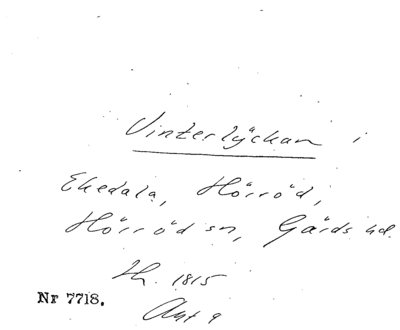 Vinterlyckan i
Ekedala, Hörröd,
Hörröd sn, Gärds hd.
Lh. 1815
Nr 7718.
Akt 9